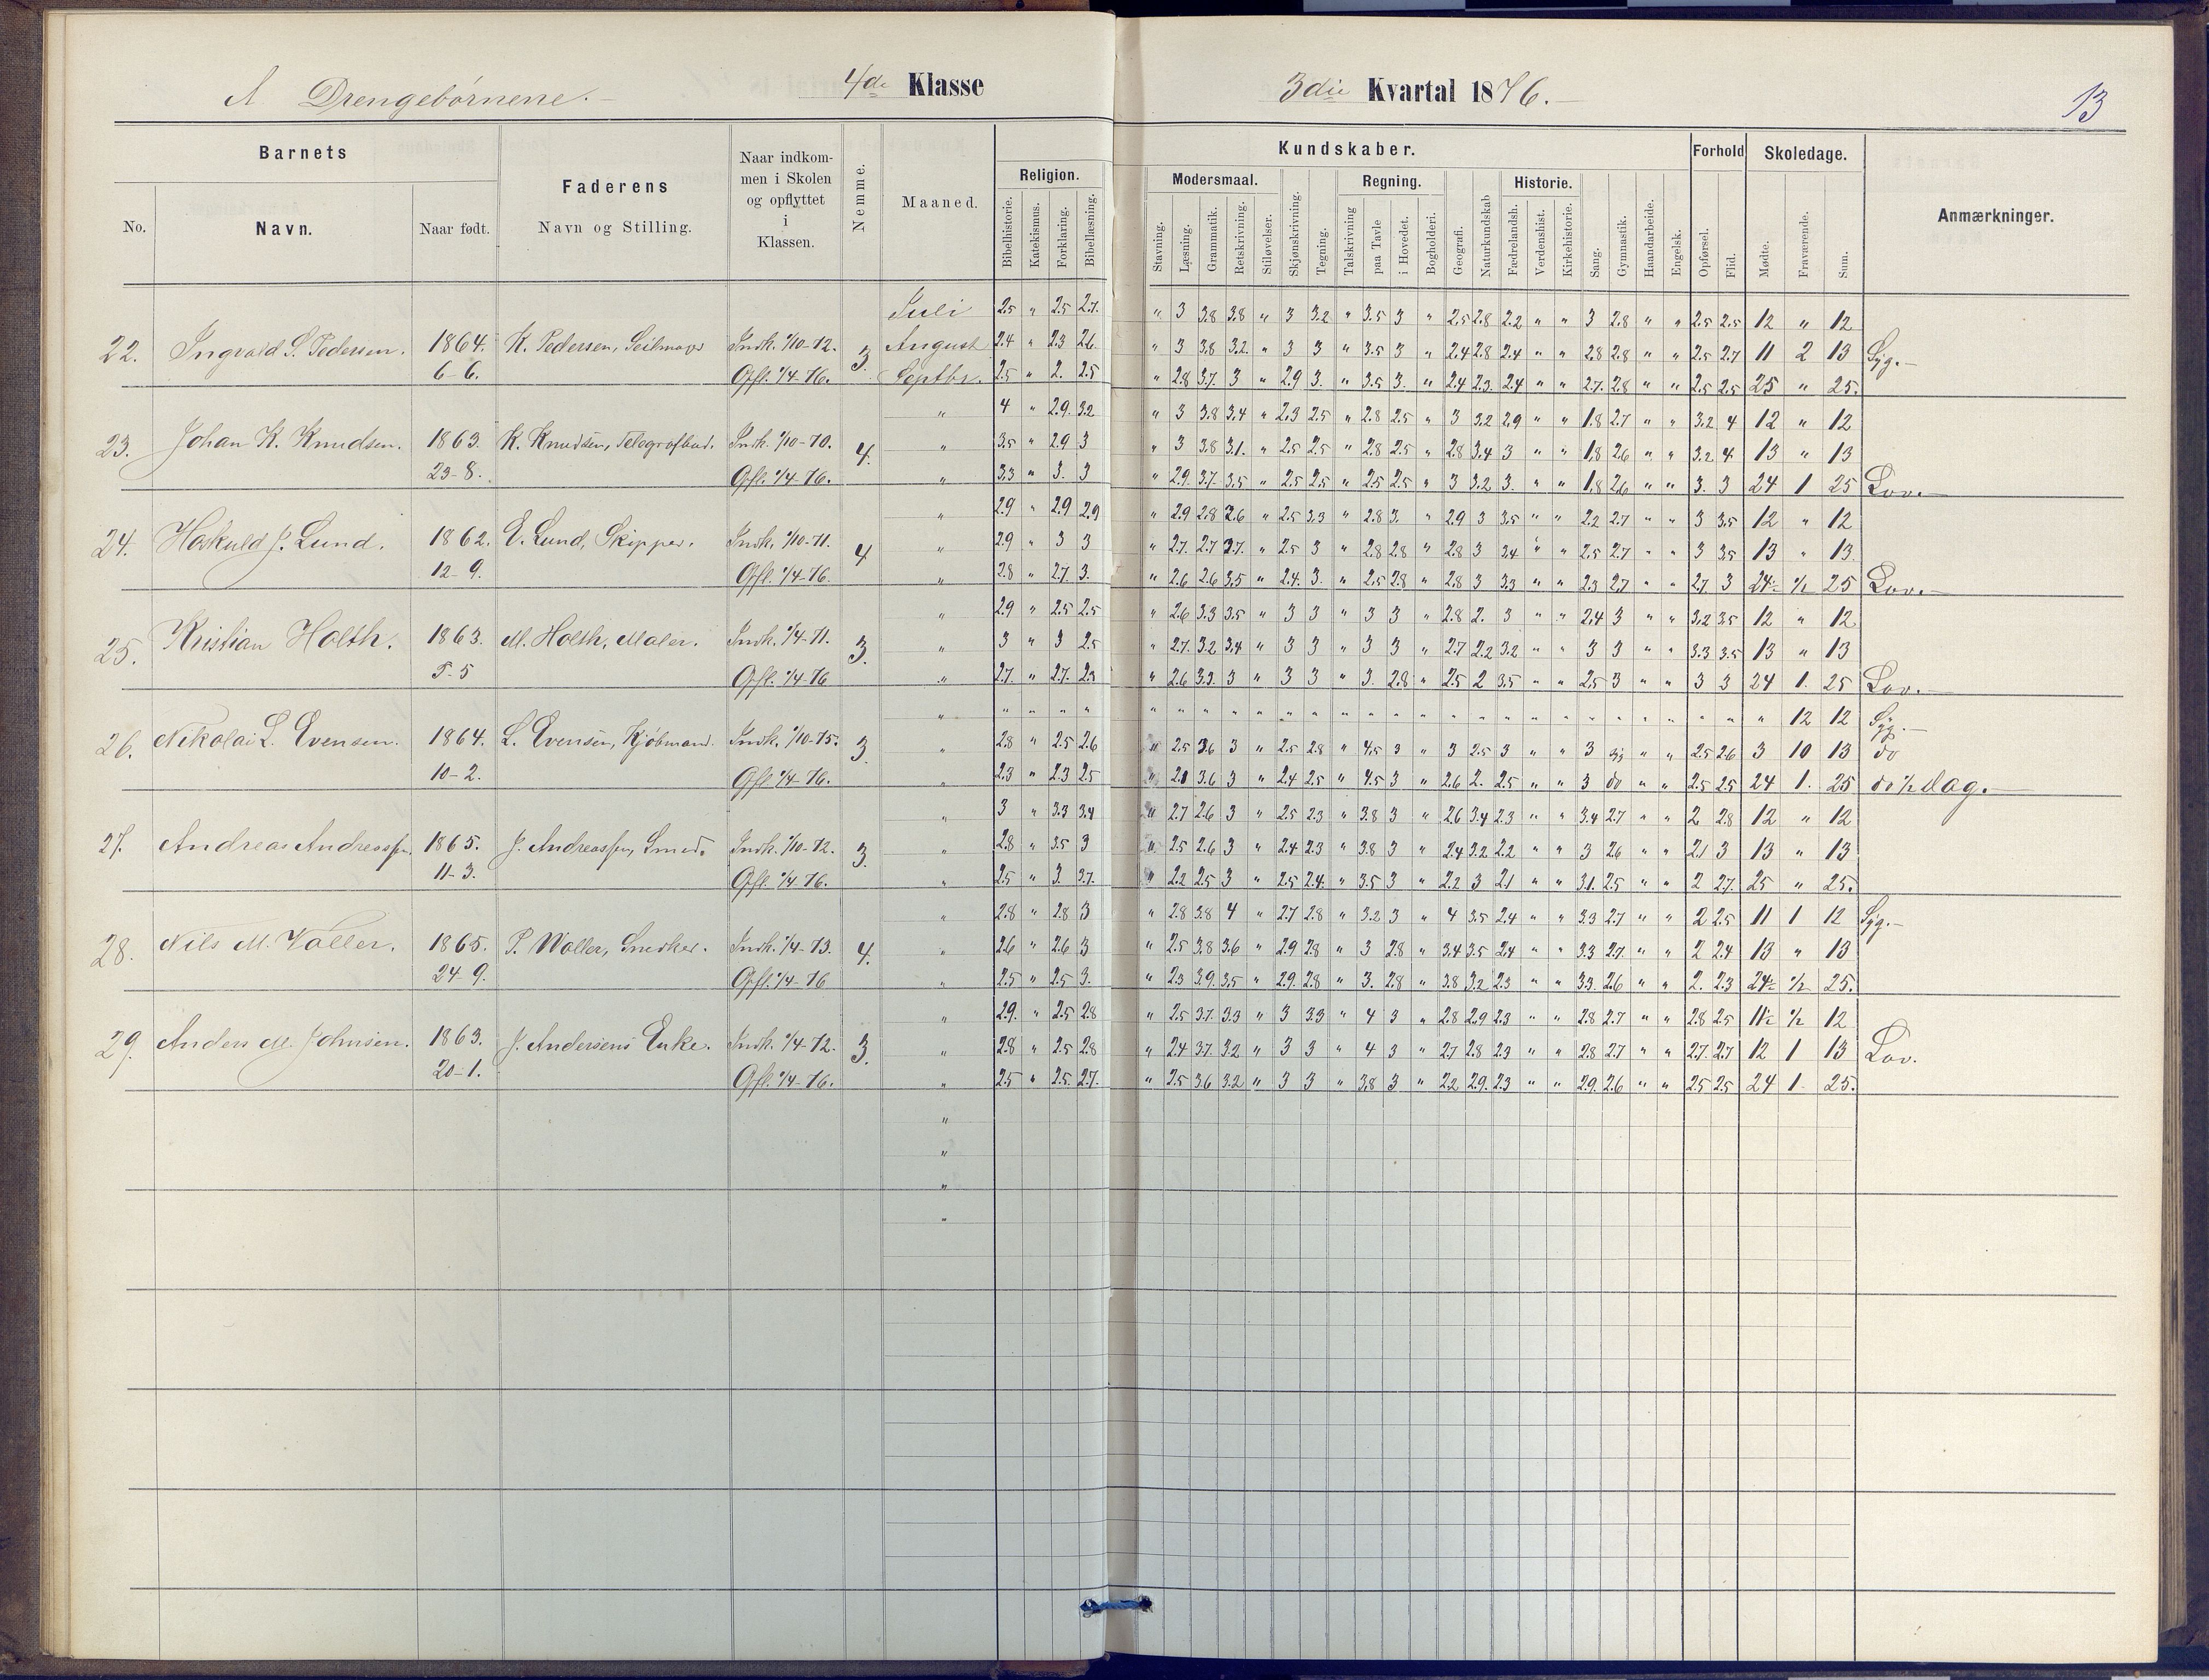 A Drengebørnene.
4de Klasse
3die Kvartal 1876.
13
Barnets
Faderens
Naar indkommen i Skolen og opflyttet i Klassen.
Nemme.
Maaned.
Religion.
Kundskaber.
Forhold
Skoledage.
Anmærkninger.
Modersmaal.
Regning.
Historie.
No.
Navn.
Naar født.
Navn og Stilling.
Bibelhistorie.
Katekismus.
Forklaring.
Bibellæsning.
Stavning.
Læsning.
Grammatik.
Retskrivning.
Stiløvelser.
Skjønskrivning.
Tegning.
Talskrivning
paa Tavle
i Hovedet.
Bogholderi.
Geografi.
Naturkundskab
Fædrelandsh.
Verdenshist.
Kirkehistorie.
Sang.
Gymnastik.
Haandarbeide.
Engelsk.
Opførsel.
Flid.
Mødte.
Fraværende.
Sum.
Juli 2.5 " 2.5 2.7. " 3 3.8 3.8 " 3 3.2 " 3.5 3 " 2.5 2.8 2.2 " " 3 2.8 " " 2.5 2.5 12 " 12
22. Ingvald S. Pedersen. 1864. K. Pedersen, Seilmager Indk. 1/10-72. 3 August 2.4 " 2.3 2.6 " 3 3.8 3.2. " 3 3 " 3.5 3 " 2.4 2.8 2.4 " " 2.8 2.8 " " 2.5 2.7 11 2 13 Syg.
6-6. Opfl. 1/4-76. Septbr. 2.5 " 2. 2.5 " 2.8 3.7. 3 " 2.9 3. " 3.5 3. " 2.4 2.3. 2.4 " " 2.7. 2.8 " " 2.5 2.5 25 " 25.
" 4 " 2.9. 3.2 " 3 3.8 3.4 " 2.3 2.5 " 2.8 2.5 " 3 3.2 2.9 " " 1.8 2.7 " " 3.2 4 12 " 12
23. Johan K. Knudsen. 1863. K. Knudsen, Telegrafbud. Indk. 1/10-70. 4. " 3.5 " 2.9 3 " 3 3.8 3.1. " 2.5 2.5 " 2.8 2.5 " 2.8 3.4 3 " " 1.8 2.6 " " 3.2 4 13 " 13
23-8. Opfl. 1/4-76. " 3.3 " 3. 3 " 2.9. 3.7. 3.5 " 2.5 2.5 " 2.5 2.5 " 3 3.2 3. " " 1.8 2.6 " " 3. 3 24 1 25 Lov.
" 2.9 " 2.9 2.9 " 2.9 2.8 3.6 " 2.5 3.3 " 2.8 3. " 2.9 3 3.5 " " 2.2 2.7 " " 3 3.5 12 " 12
24. Haskuld J. Lund. 1862. E. Lund, Skipper. Indk. 1/10-71. 4 " 2.9 " 3 3 " 2.7. 2.7 3.7. " 2.5 3 " 2.8 2.8 " 2.8 3 3.4 " " 2.5 2.7 " " 3 3.5 13 " 13
12-9. Opfl. 1/4-76. " 2.8 " 2.7. 3. " 2.6 2.6 3.5 " 2.4. 3. " 2.5 2.8 " 2.8 3 3.3 " " 2.3 2.7 " " 2.7 3 24½ ½ 25 Lov.
" 2.9 " 2.5 2.5 " 2.6 3.3 3.5 " 3 3 " 3 3 " 2.8 2. 3 " " 2.4 3 " " 3.2 3.5 12 " 12
25. Kristian Holth. 1863. M. Holth, Maler. Indk. 1/4-71. 3. " 3 " 3 2.5 " 2.7. 3.2 3.4 " 3 3 " 3 3 " 2.7 2.2 3.2 " " 3 3 " " 3.3 3.5 13 " 13
5-5 Opfl. 1/4-76 " 2.7. " 2.7. 2.3 " 2.6 3.3. 3 " 3 3 " 3. 2.8 " 2.5 2 3.5 " " 2.5 3 " " 3 3 24 1. 25 Lov.
" " " " " " " " " " " " " " " " " " " " " " " " " " " " 12 12 Syg.
26. Nikolai L. Evensen. 1864. L. Evensen, Kjøbmand. Indk. 1/10-75. 3. " 2.8 " 2.5 2.6 " 2.5 3.6 3 " 2.5 2.8 " 4.5 3 " 3 2.5 3 " " 3 " " 2.5 2.6 3 10 13 do
10-2. Opfl. 1/4-76. " 2.3 " 2.3 2.5 " 2.1 3.6 3 " 2.4 2.5 " 4.5 3 " 2.6 2. 2.5 " " 3 do " " 2.5 2.5 24 1. 25 do ½ dag.
" 3 " 3.3 3.4 " 2.7 2.6 3 " 2.5 2.3 " 3.8 3 " 2.6 3.4 2.3 " " 3.4 2.7 " " 2 2.8 12 " 12
27. Andreas Andreassen. 1865. J. Andreassen, Smed. Indk. 1/10-72. 3. " 2.8 " 3.5 3 " 2.5 2.6 3 " 2.4 2.3 " 3.8 3 " 2.4 3.2 2.2 " " 3 2.6 " " 2.1 3 13 " 13
11-3. Opfl. 1/4-76. " 2.5 " 3. 3.7. " 2.2 2.5 3 " 2.5 2.4. " 3.5 3 " 2.2 3 2.1 " " 3.1. 2.5 " " 2 2.7. 25 " 25.
" 2.8 " 2.8 3 " 2.8 3.8 4 " 2.7 2.8 " 3.2 3 " 4 3.5 2.4 " " 3.3 2.7 " " 2 2.5 11 1 12 Syg.
28. Nils M. Waller. 1865. P. Waller, Snedker. Indk. 1/4-73. 4. " 2.6 " 2.6 3 " 2.5 3.8 3.6 " 2.9 2.8 " 3 2.8 " 3.4 3.5 2.4 " " 3.3 2.7. " " 2 2.4 13 " 13
24-9. Opfl. 1/4-76 " 2.5 " 2.5 3. " 2.3 3.9. 3.5 " 2.9. 2.8 " 3. 2.8 " 3.8 3.2 2.3 " " 3.3. 2.6 " " 2. 2.3 24½ ½ 25.
" 2.9. " 2.5 2.8 " 2.5 3.7. 3.3 " 3 3.3 " 4 3 " 2.8 2.9 2.3 " " 2.8 2.7 " " 2.8 2.5 11½ ½ 12
29. Anders M. Johnsen. 1863. J. Andersens Enke. Indk. 1/4-72. 3. " 2.8 " 2.5 2.8 " 2.4 3.7. 3.2 " 3 3 " 4 3 " 2.7 2.8 2.3 " " 2.8 2.7 " " 2.7. 2.7 12 1 13 Lov.
20-1. Opfl. 1/4-76. " 2.5 " 2.5. 2.7. " 2.5 3.6 3.2 " 3 3 " 3.8 3 " 2.2 2.9. 2.3 " " 2.9. 2.6 " " 2.5 2.5 24 1 25.
"
"
"
"